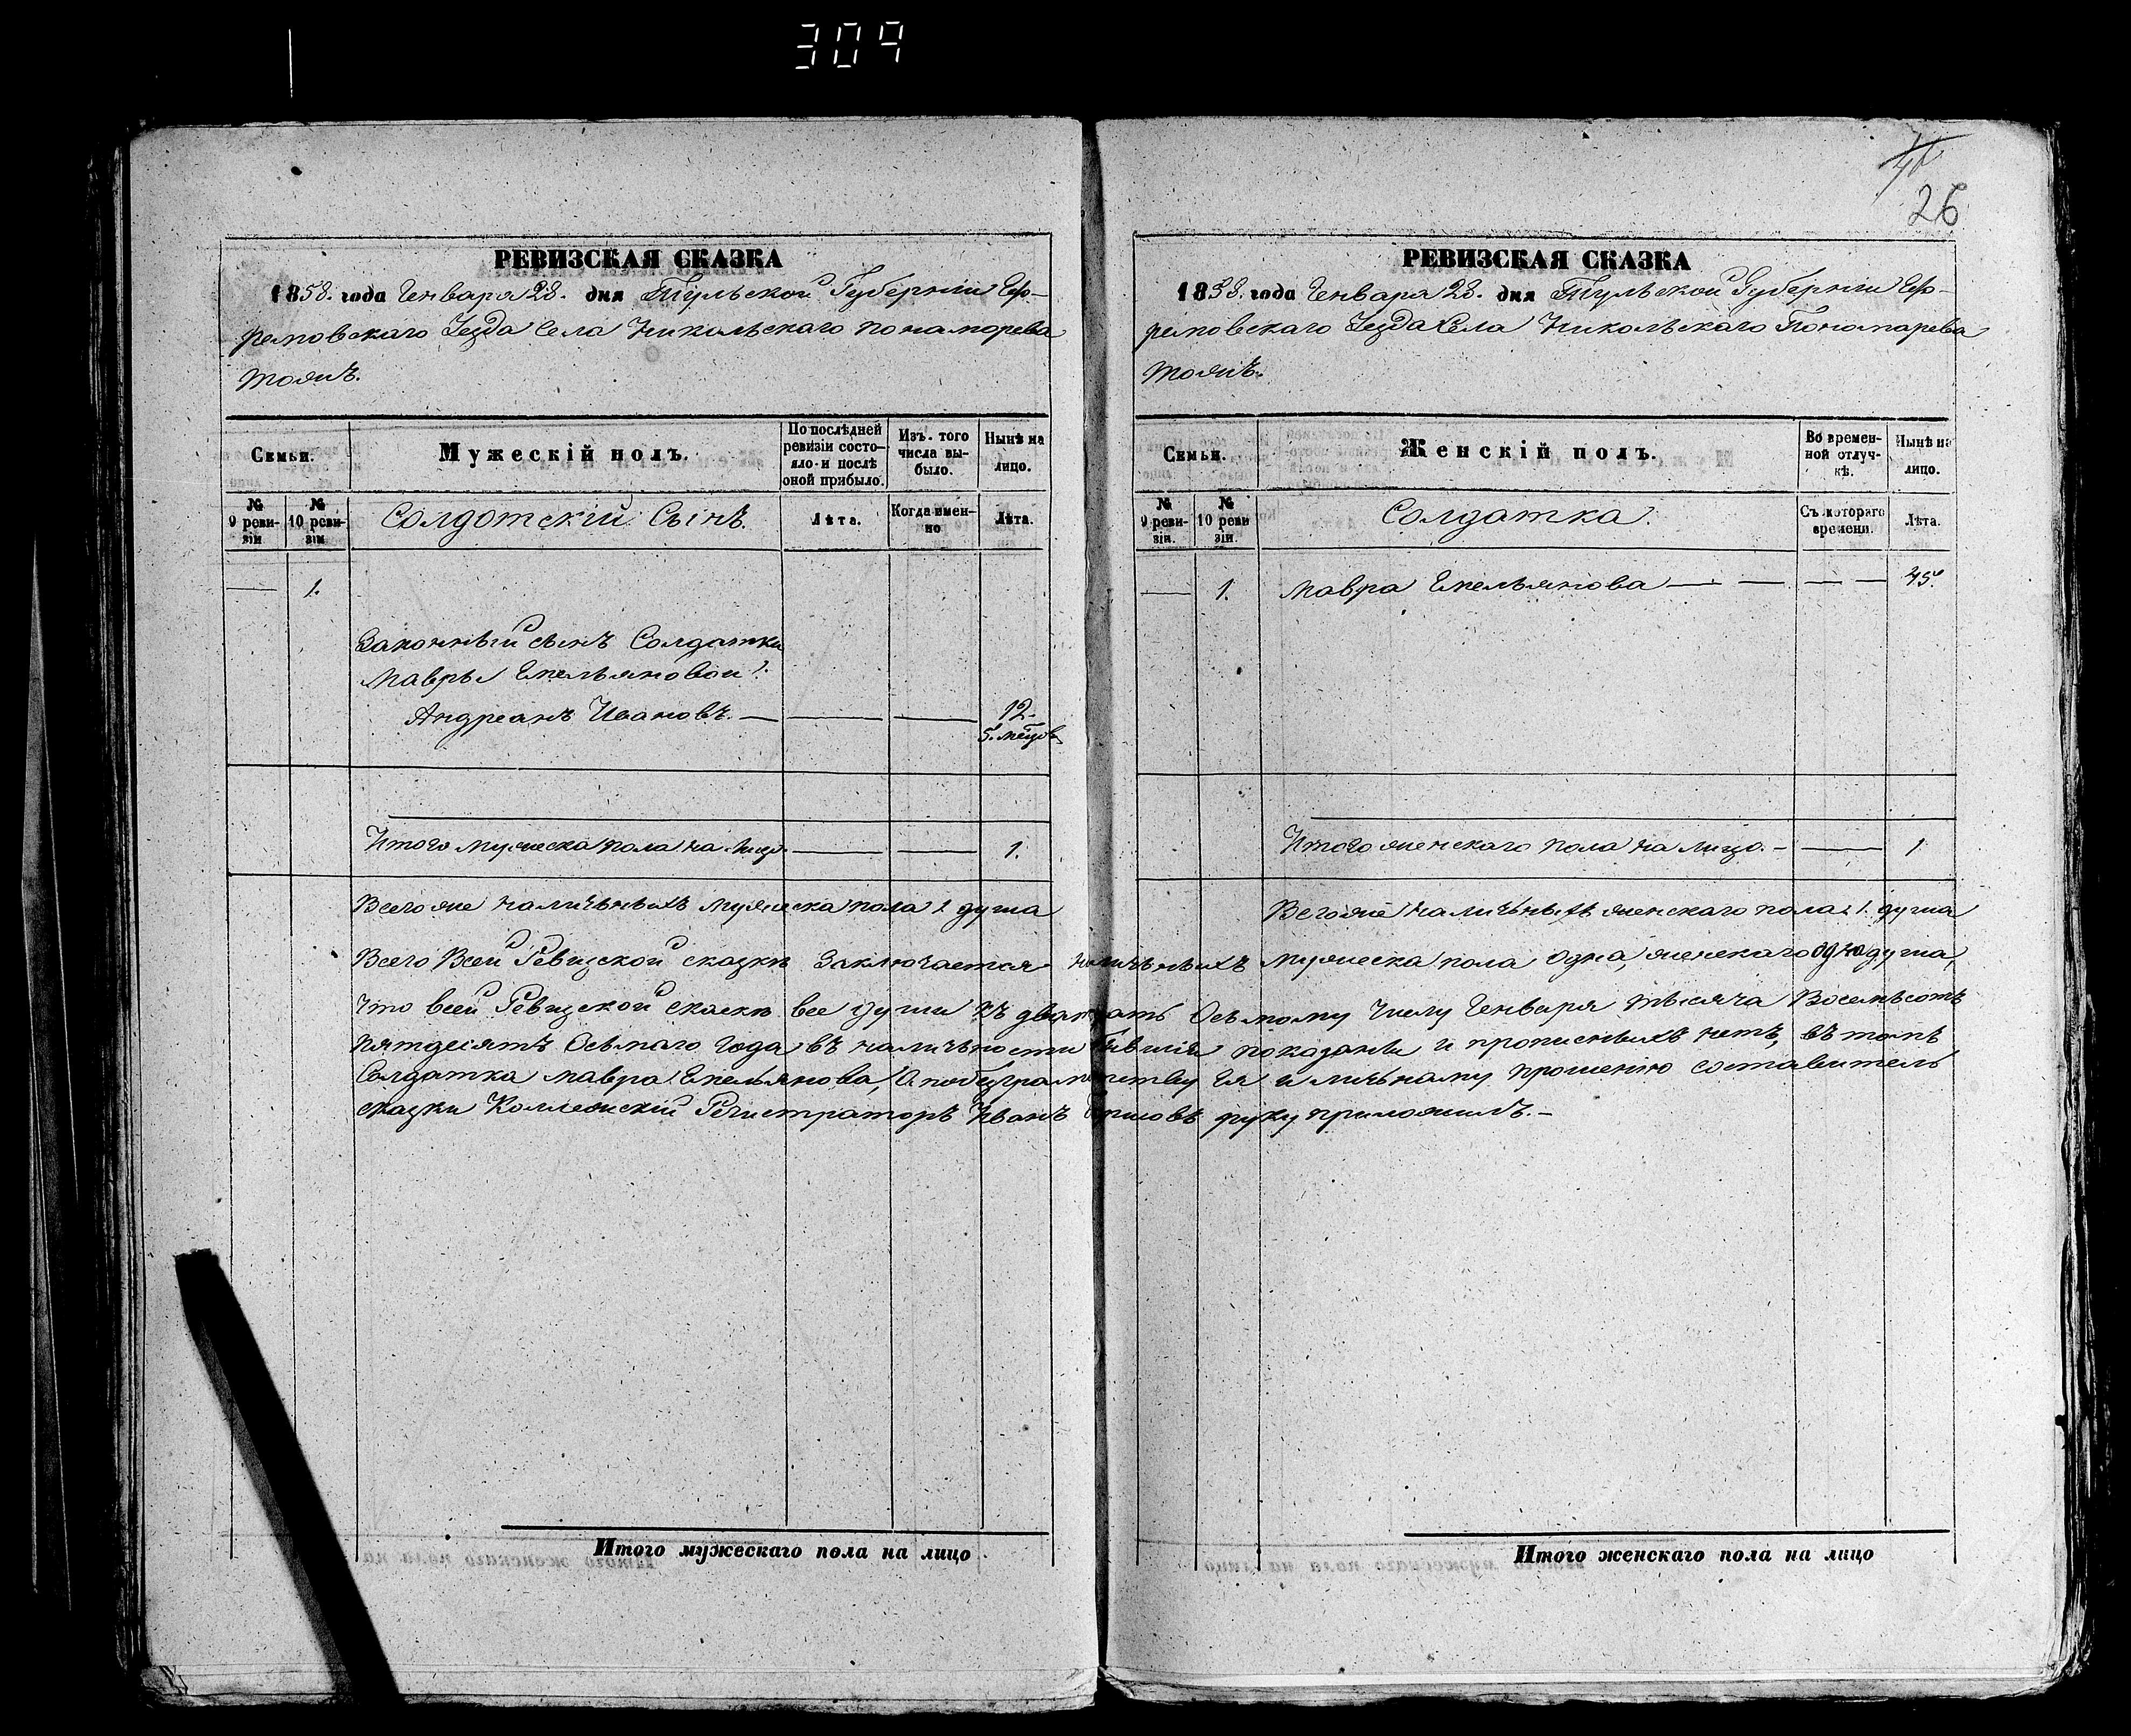 309
26
РЕВИЗСКАЯ СКАЗКА
1858. года Генваря 28. дня Тульской Губерніи Еф-
ремовскаго Уезда Села Никольскаго Понаморева
тожъ.
Семьи.
Мужескій полъ.
По послѣдней ревизіи состо-яло и послѣ оной прибыло.
Изъ того числа вы-было.
Нынѣ на лицо.
№ 9 реви-зіи
№ 10 реви-зіи
Солдотскій Сынъ.
Лѣта.
Когда имен-но
Лѣта.
— 1.
Законный сынъ Солдатки
Мавры Емельяновой 1.
Андреанъ Ивановъ. — — — 12.
5. мѣцов
Итого мужеска пола на лицо. — — 1.
Всего же наличьныхъ мужеска пола 1 душа
РЕВИЗСКАЯ СКАЗКА
1858. года Генваря 28. дня Тульской Губерніи Еф-
ремовскаго Уезда Села Никольскаго Пономарева
тожъ.
Семьи.
Женскій полъ.
Во времен-ной отлуч-кѣ.
Нынѣ на лицо.
№ 9 реви-зіи.
№ 10 реви зіи.
Солдатка.
Съ котораго времени.
Лѣта.
— 1. Мавра Емельянова — — — — 45.
Итого женскаго пола на лицо. — — 1
Всего же наличьныхъ женскаго пола 1. душа
Всего Всей Ревизской сказкѣ Заключается наличьныхъ мужеска пола одна, женскаго одна душа,
что всей Ревизской скаскѣ все души къ двадцать Осьмому Числу Генваря тысяча Восемьсотъ
пятдесятъ Осьмаго года въ наличьности показаны и прописныхъ нетъ, въ томъ
Солдатка Мавра Емельянова, А по безграмотству Ея и личьному прошенію составитель
сказки Коллежскій Регистраторъ Иванъ руку приложилъ. —
Итого мужескаго пола на лицо
Итого женскаго пола на лицо